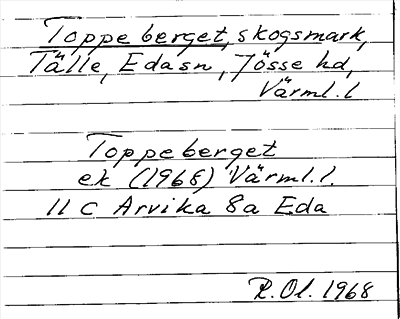 Toppeberget, skogsmark,
Tälle, Edasn, Jösse hd,
Värml. l
Toppeberget
ek (1968) Värml. l.
11 C Arvika 8a Eda
R. Ol. 1968